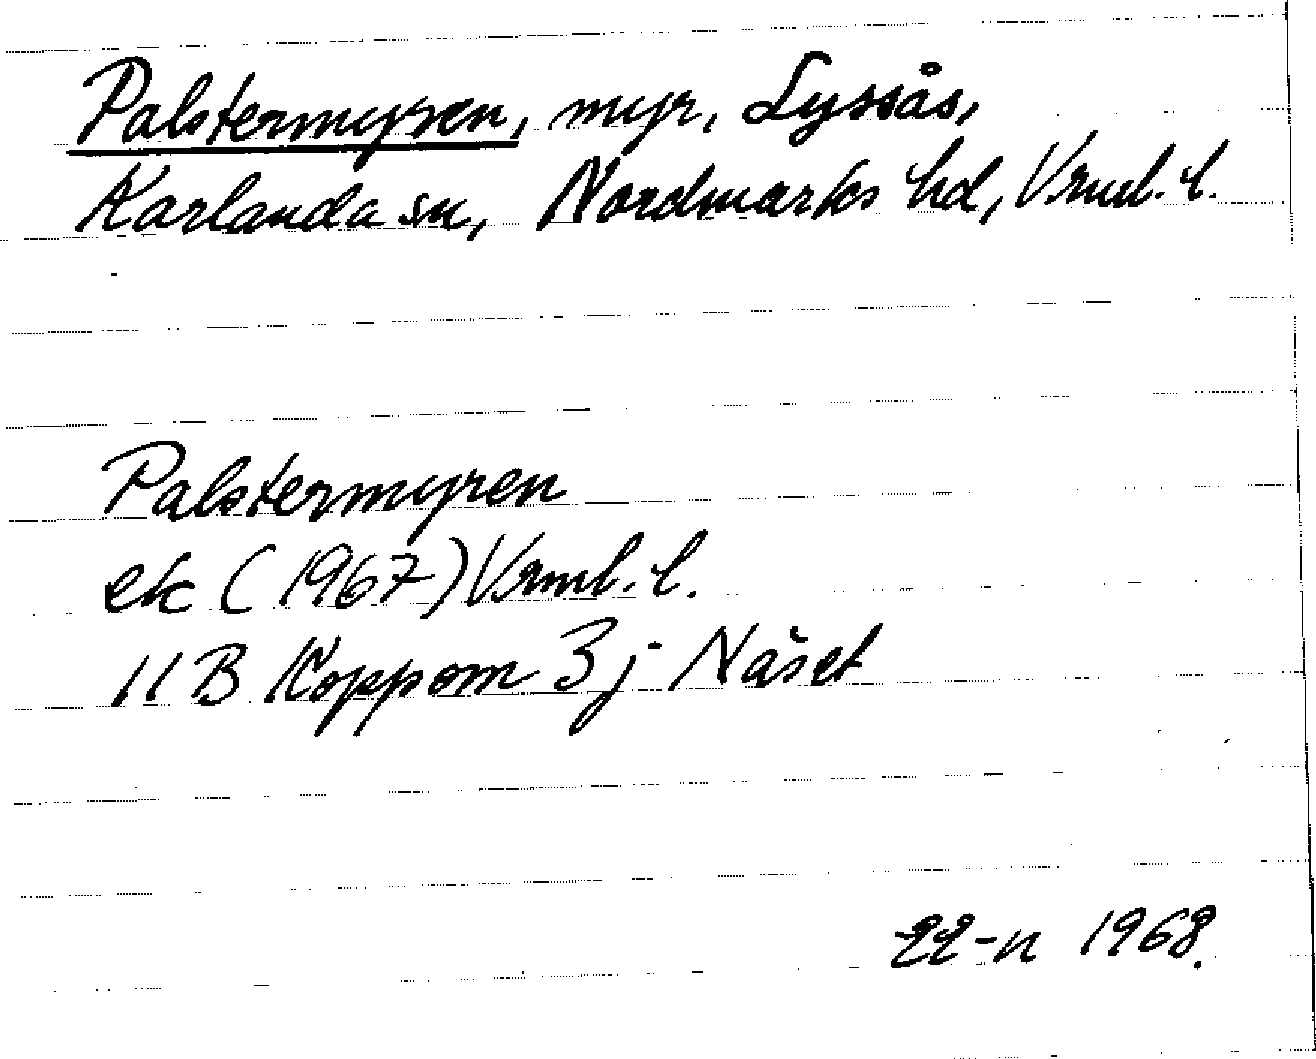 Palstermyren, myr, Lyssås,
Karlanda sn, Nordmarks hd, Vrml. l.
Palstermyren
ek (1967) Vrml. l.
11 B Koppom 3 j Näset
1968.